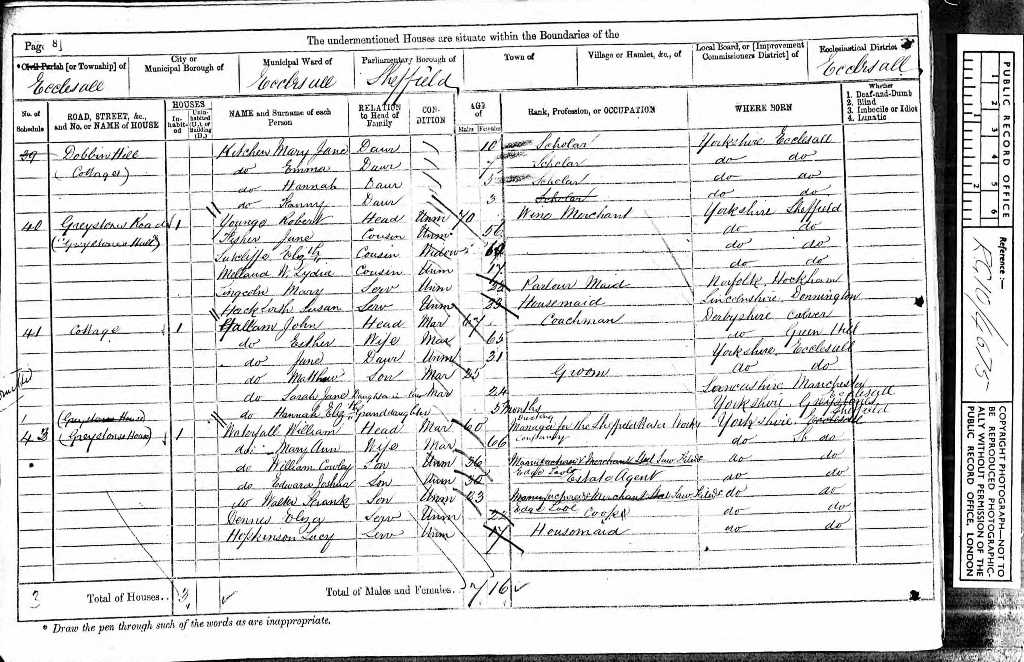 Page 8]
The undermentioned Houses are situate within the Boundaries of the
*Civil Parish [or Township] of
City or Municipal Borough of
Municipal Ward of
Parliamentary Borough of
Town of
Village or Hamlet, &c., of
Local Board, or [Improvement Commissioners District] of
Ecclesiastical District of
Ecclesall
Ecclesall
Sheffield
Ecclesall
No. of Schedule
ROAD, STREET, &c., and No. or NAME of HOUSE
HOUSES
Inhabited
Uninhabited (U.), or Building (B.)
NAME and Surname of each Person
RELATION to Head of Family
CONDITION
AGE of
Males
Females
Rank, Profession, or OCCUPATION
WHERE BORN
Whether
1. Deaf-and-Dumb
2. Blind
3. Imbecile or Idiot
4. Lunatic
39 Dobbin Hill Kitchen Mary Jane Daur 10 Scholar Yorkshire Ecclesall
(Cottages) do Emma Daur 7 Scholar do do
do Hannah Daur 5 Scholar do do
do Fanny Daur 3 Scholar do do
40 Greystones Road 1 Younge Robert Head Unm 70 Wine Merchant Yorkshire Sheffield
(Greystones Hall) Fisher Jane Cousin Unm do do
Sutcliffe Elizth Cousin Widow do do
W. Lydia Cousin Unm 17 do do
Lincoln Mary Serv Unm Parlour Maid Norfolk Hockham
Susan Serv Unm 23 Housemaid Lincolnshire Donnington
41 Cottage 1 Hallam John Head Mar 67 Coachman Derbyshire Calver
do Esther Wife Mar 65 do Green Hill
do Jane Daur Unm 31 Yorkshire Ecclesall
do Matthew Son Mar 25 Groom do do
do Sarah Jane Daughter in law Mar 24 Lancashire Manchester
do Hannah Elizth Granddaughter 5 Months Yorkshire Greystones
1 (Greystones House)
43 (Greystones House) 1 Waterfall William Head Mar 60 Manager for the Sheffield Water Works Company Yorkshire Sheffield
do Mary Ann Wife Mar 66 do do
do William Cowley Son Unm 36 Manufacturer & Merchant Steel Saw Files Edge Tool do do
do Edward Joshua Son Unm 30 Estate Agent do do
do Walter Frank Son Unm 23 Manufacturer & Merchant Steel Saw Files Edge Tool do do
Dennis Eliza Serv Unm Cook do do
Hopkinson Lucy Serv Unm Housemaid do do
3 Total of Houses.. 3 Total of Males and Females.. 7 16
* Draw the pen through such of the words as are inappropriate.
PUBLIC RECORD OFFICE
1 2 3 4 5 6
1 2
Reference:—
RG10/4675
COPYRIGHT PHOTOGRAPH—NOT TO BE REPRODUCED PHOTOGRAPHICALLY WITHOUT PERMISSION OF THE PUBLIC RECORD OFFICE, LONDON